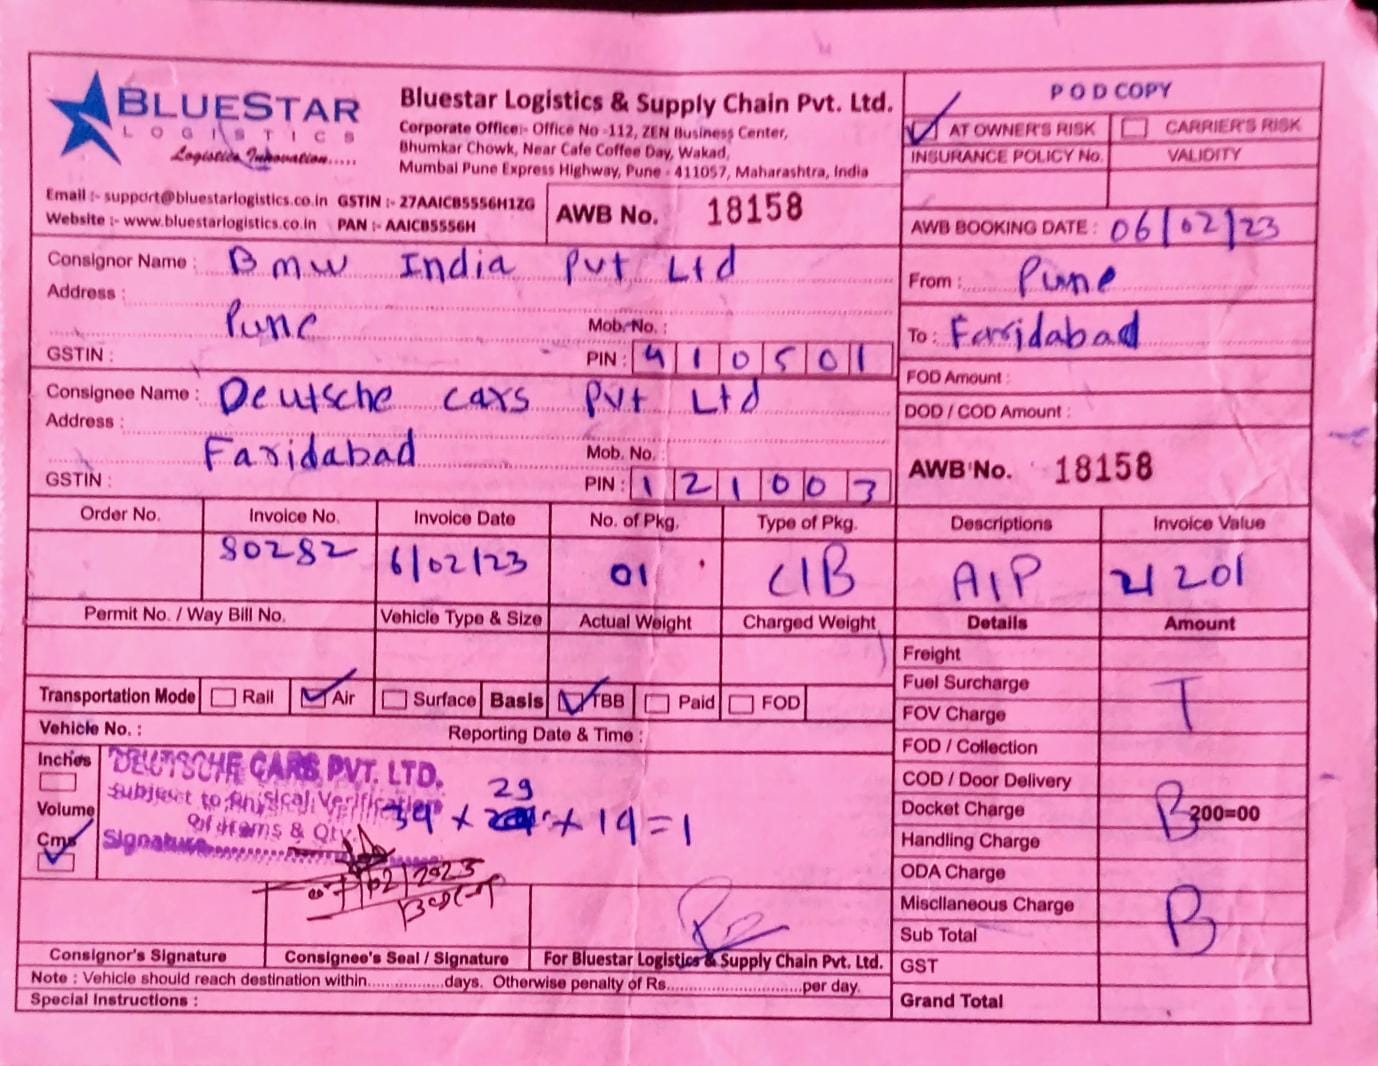 BLUESTAR
LOGISTICS
Logistics Innovation.....
Bluestar Logistics & Supply Chain Pvt. Ltd.
Corporate Office:- Office No -112, ZEN Business Center,
Bhumkar Chowk, Near Cafe Coffee Day, Wakad,
Mumbai Pune Express Highway, Pune - 411057, Maharashtra, India
Email :- support@bluestarlogistics.co.in GSTIN :- 27AAICB5556H1ZG
Website :- www.bluestarlogistics.co.in PAN :- AAICB5556H
AWB No. 18158
POD COPY
AT OWNER'S RISK CARRIER'S RISK
INSURANCE POLICY No. VALIDITY
AWB BOOKING DATE : 06/02/23
Consignor Name : Bmw India Pvt Ltd
Address :
Pune Mob. No. :
GSTIN : PIN : 410501
From : Pune
To : Faridabad
Consignee Name : Deutsche cars Pvt Ltd
Address :
Faridabad Mob. No. :
GSTIN : PIN : 121003
FOD Amount :
DOD / COD Amount :
AWB No. 18158
Order No. Invoice No. Invoice Date No. of Pkg. Type of Pkg. Descriptions Invoice Value
80282 6/02/23 01 C/B A/P 21201
Permit No. / Way Bill No. Vehicle Type & Size Actual Weight Charged Weight Details Amount
Transportation Mode Rail Air Surface Basis TBB Paid FOD
Vehicle No. : Reporting Date & Time :
Inches
Volume
Cms
DEUTSCHE CARS PVT. LTD.
Subject to Physical Verification
Of Items & Qty
Signature
39 x 29 x 19 = 1
07/02/2023
Freight
Fuel Surcharge
FOV Charge
T
FOD / Collection
COD / Door Delivery
Docket Charge B 200=00
Handling Charge
ODA Charge
Miscllaneous Charge
B
Sub Total
GST
Grand Total
Consignor's Signature Consignee's Seal / Signature For Bluestar Logistics & Supply Chain Pvt. Ltd.
Note : Vehicle should reach destination within.................days. Otherwise penalty of Rs..............................per day.
Special Instructions :